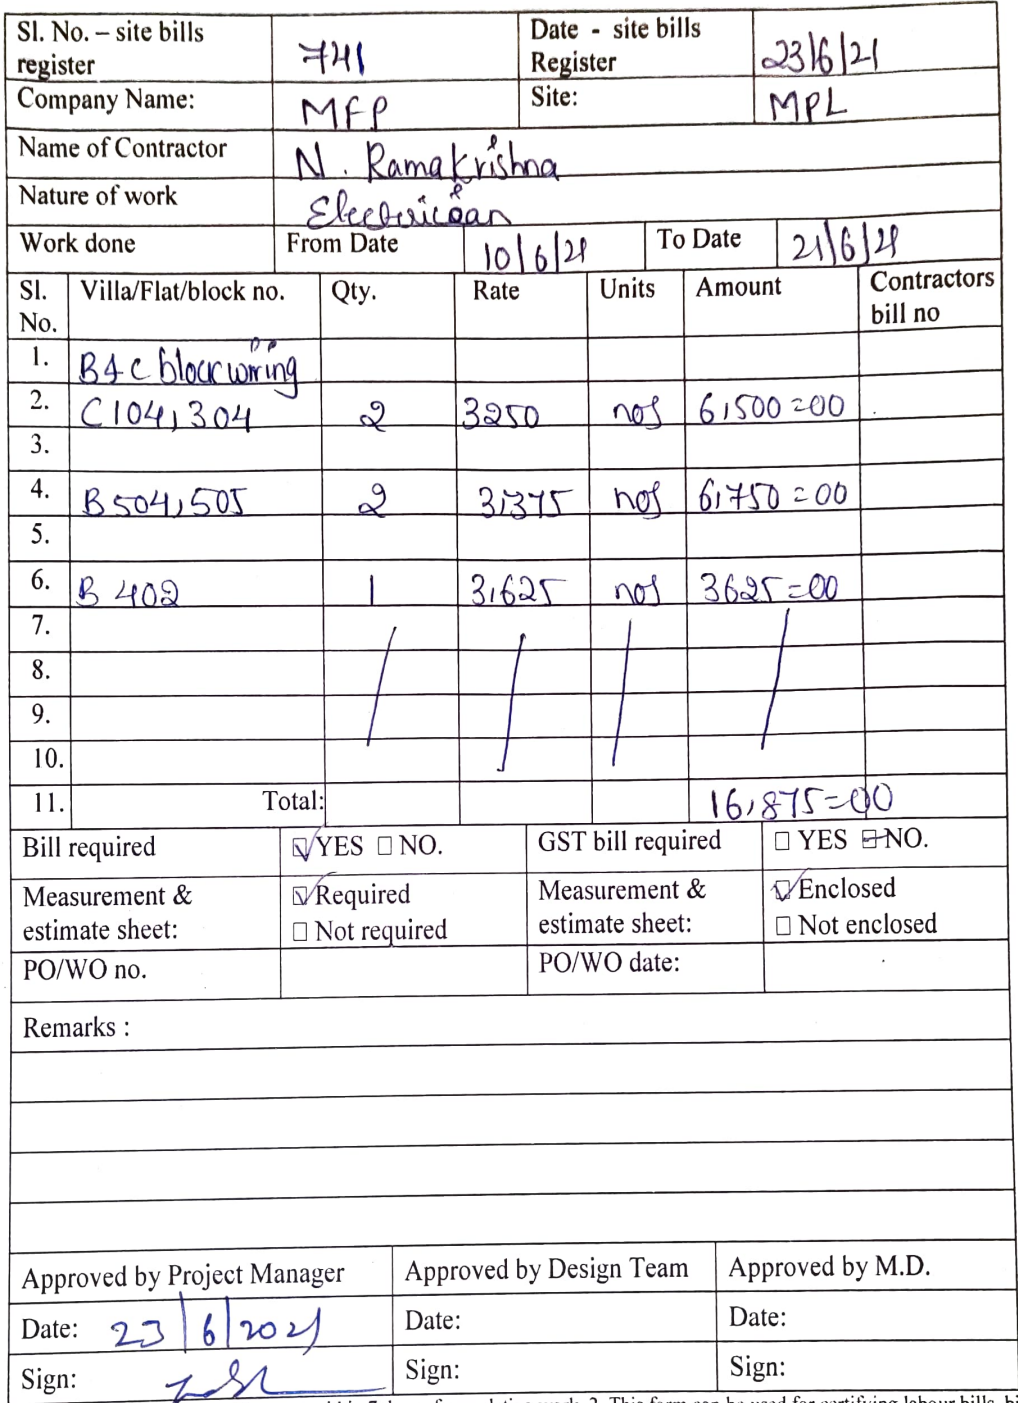 Sl. No. – site bills register 741 Date - site bills Register 23/6/21
Company Name: MFP Site: MPL
Name of Contractor N. Ramakrishna
Nature of work Electrician
Work done From Date 10/6/21 To Date 21/6/21
Sl. No. Villa/Flat/block no. Qty. Rate Units Amount Contractors bill no
1. B & C block wiring
2. C104, 304 2 3250 nos 6,500=00
3.
4. B504, 505 2 3,375 nos 6,750=00
5.
6. B 402 1 3,625 nos 3625=00
7.
8.
9.
10.
11. Total: 16,875=00
Bill required ☑ YES ☐ NO. GST bill required ☐ YES ☑ NO.
Measurement & estimate sheet: ☑ Required ☐ Not required Measurement & estimate sheet: ☑ Enclosed ☐ Not enclosed
PO/WO no. PO/WO date:
Remarks :
Approved by Project Manager Approved by Design Team Approved by M.D.
Date: 23/6/2021 Date: Date:
Sign: Sign: Sign: